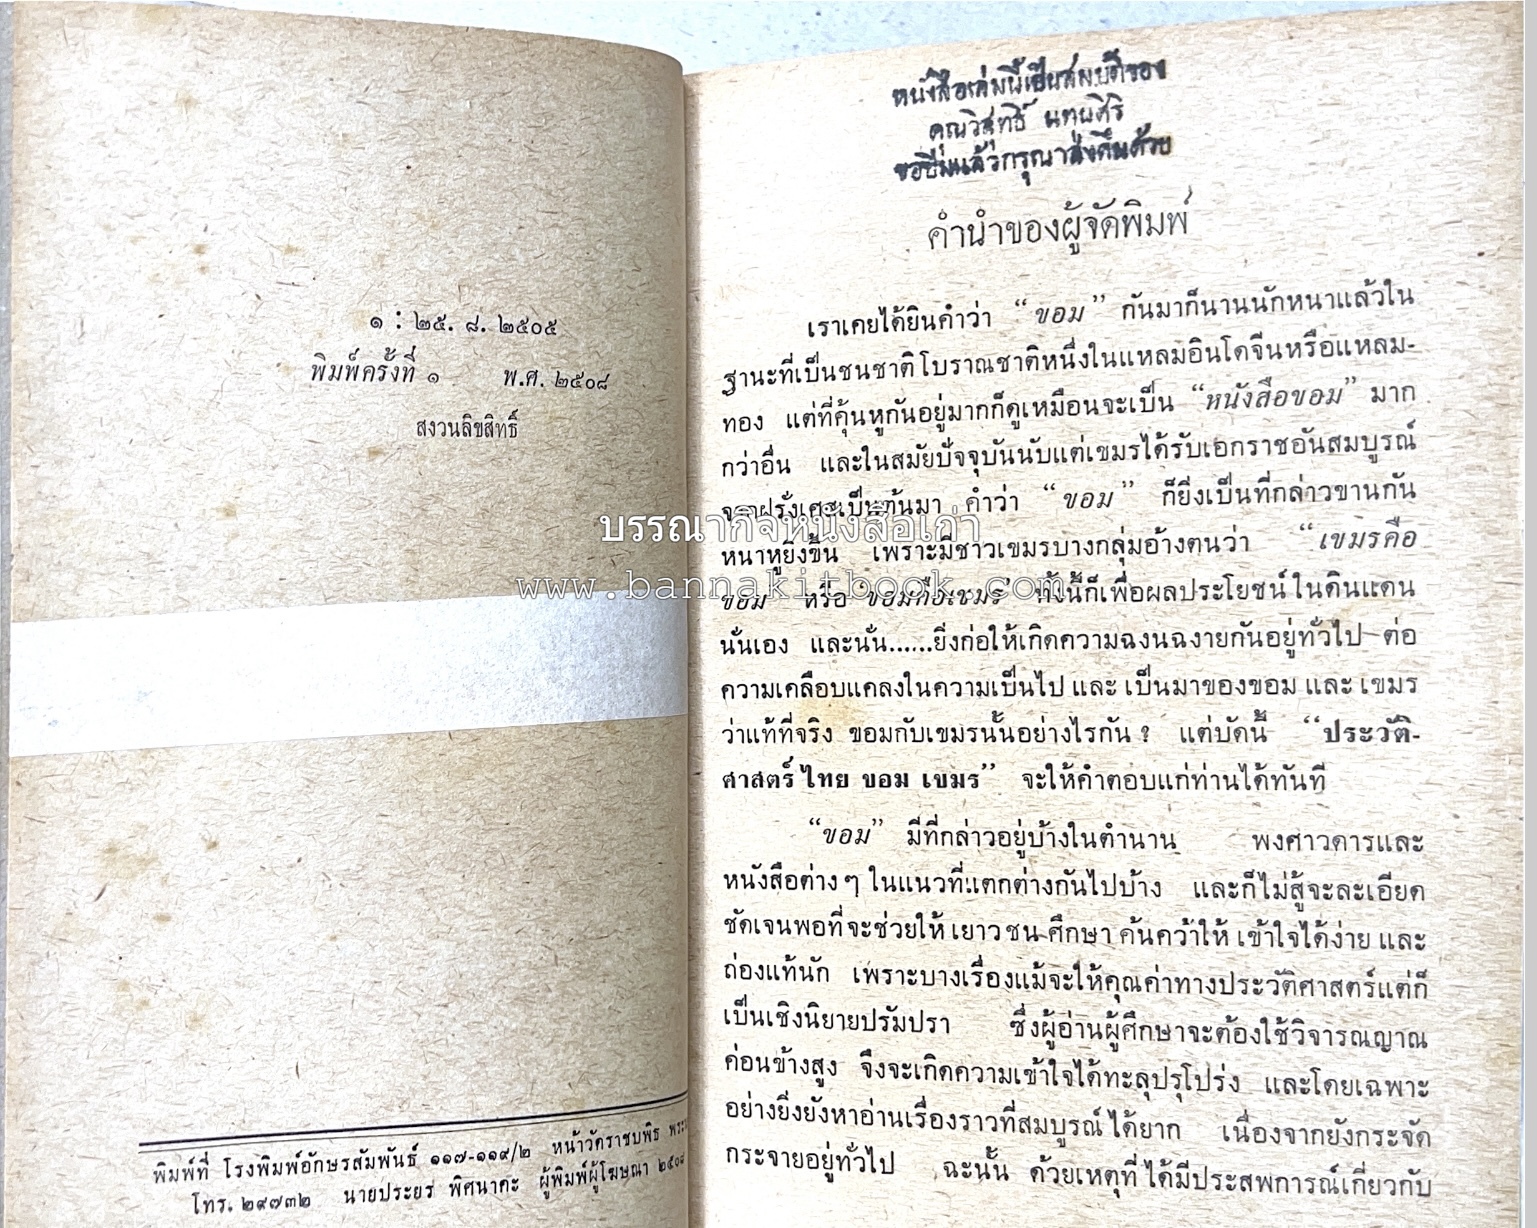 ๑ : ๒๕. ๘. ๒๕๐๕
พิมพ์ครั้งที่ ๑ พ.ศ. ๒๕๐๘
สงวนลิขสิทธิ์
พิมพ์ที่ โรงพิมพ์อักษรสัมพันธ์ ๑๑๗-๑๑๙/๒ หน้าวัดราชบพิธ
โทร. ๒๙๗๓๒ นายประยูร พิศนาคะ ผู้พิมพ์ผู้โฆษณา ๒๕๐๘
หนังสือเล่มนี้เป็นสมบัติของ
คุณวิสุทธิ์
ขอยืมแล้วกรุณาส่งคืนด้วย
คำนำของผู้จัดพิมพ์
เราเคยได้ยินคำว่า “ขอม” กันมาก็นานนักหนาแล้วใน
ฐานะที่เป็นชนชาติโบราณชาติหนึ่งในแหลมอินโดจีนหรือแหลม-
ทอง แต่ที่คุ้นหูกันอยู่มากก็ดูเหมือนจะเป็น “หนังสือขอม” มาก
กว่าอื่น และในสมัยปัจจุบันนับแต่เขมรได้รับเอกราชอันสมบูรณ์
จากฝรั่งเศสเป็นต้นมา คำว่า “ขอม” ก็ยิ่งเป็นที่กล่าวขานกัน
หนาหูยิ่งขึ้น เพราะมีชาวเขมรบางกลุ่มอ้างตนว่า “เขมรคือ
ขอม” หรือ “ขอมคือเขมร” ทั้งนี้ก็เพื่อผลประโยชน์ในดินแดน
นั่นเอง และนั่น......ยิ่งก่อให้เกิดความฉงนฉงายกันอยู่ทั่วไป ต่อ
ความเคลือบแคลงในความเป็นไป และ เป็นมาของขอม และ เขมร
ว่าแท้ที่จริง ขอมกับเขมรนั้นอย่างไรกัน ? แต่บัดนี้ “ประวัติ-
ศาสตร์ ไทย ขอม เขมร” จะให้คำตอบแก่ท่านได้ทันที
“ขอม” มีที่กล่าวอยู่บ้างในตำนาน พงศาวดารและ
หนังสือต่าง ๆ ในแนวที่แตกต่างกันไปบ้าง และก็ไม่สู้จะละเอียด
ชัดเจนพอที่จะช่วยให้ เยาวชน ศึกษา ค้นคว้าให้ เข้าใจได้ง่าย และ
ถ่องแท้นัก เพราะบางเรื่องแม้จะให้คุณค่าทางประวัติศาสตร์แต่ก็
เป็นเชิงนิยายปรัมปรา ซึ่งผู้อ่านผู้ศึกษาจะต้องใช้วิจารณญาณ
ค่อนข้างสูง จึงจะเกิดความเข้าใจได้ทะลุปรุโปร่ง และโดยเฉพาะ
อย่างยิ่งยังหาอ่านเรื่องราวที่สมบูรณ์ ได้ยาก เนื่องจากยังกระจัด
กระจายอยู่ทั่วไป ฉะนั้น ด้วยเหตุที่ ได้มีประสพการณ์เกี่ยวกับ
บรรณากิจหนังสือเก่า
www.bannakitbook.com